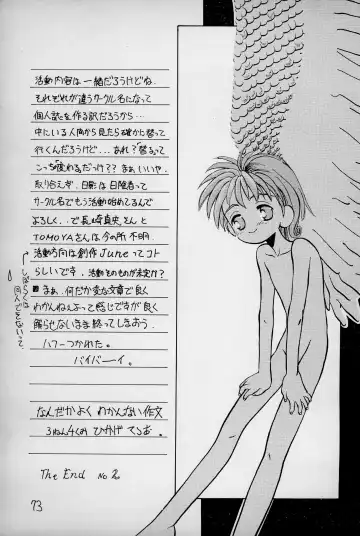 活動内容は一緒だろうけどね.
それぞれが違うサークル名になって
個人誌を作る訳だろうから…
中にいる人間から見たら確かに替って
行くんだろうけど…あれ？替るって
こっち使わるだっけ？？まぁいいや.
取り合えず.日影は日陰者って
サークル名でもう活動始めてるんで
よろしく.で長崎真央さんと
TOMOYAさんは今の所不明.
活動方向は創作Juneってコト
らしいです.活動そのものが未定!?
まぁ、何だか変な文章で良く
わかんねぇよって感じですが良く
解らせないまま終ってしまおう.
ハフーつかれた。
バイバーイ。
なんだかよく わかんない作文
3ねん4くみ ひかげ てるお。
The End No 2
73